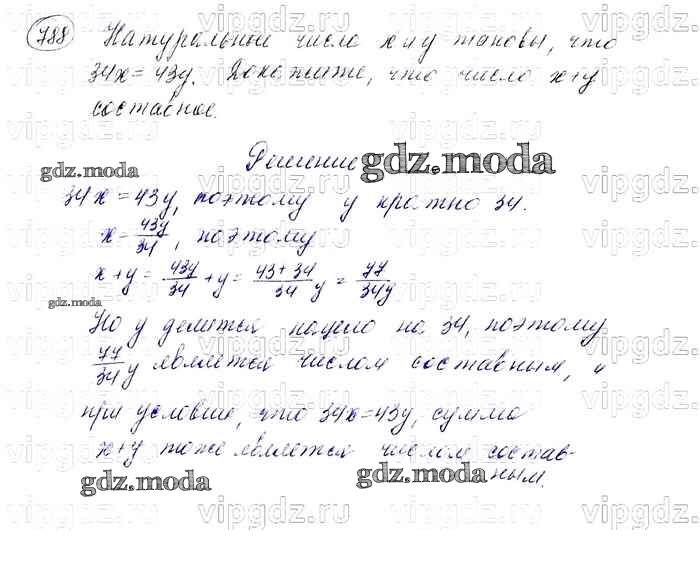 788 Натуральные числа x и y таковы, что
34x = 43y. Докажите, что число x+y
составное.
Решение
gdz.moda
gdz.moda
34x = 43y, поэтому y кратно 34.
x = 43y/34, поэтому
x + y = 43y/34 + y = 43+34/34 y = 77/34y
gdz.moda
Но y делится нацело на 34, поэтому
77/34 y является числом составным, и
при условии, что 34x=43y, сумма
x+y тоже является числом состав-
ным.
gdz.moda
gdz.moda
vipgdz.ru